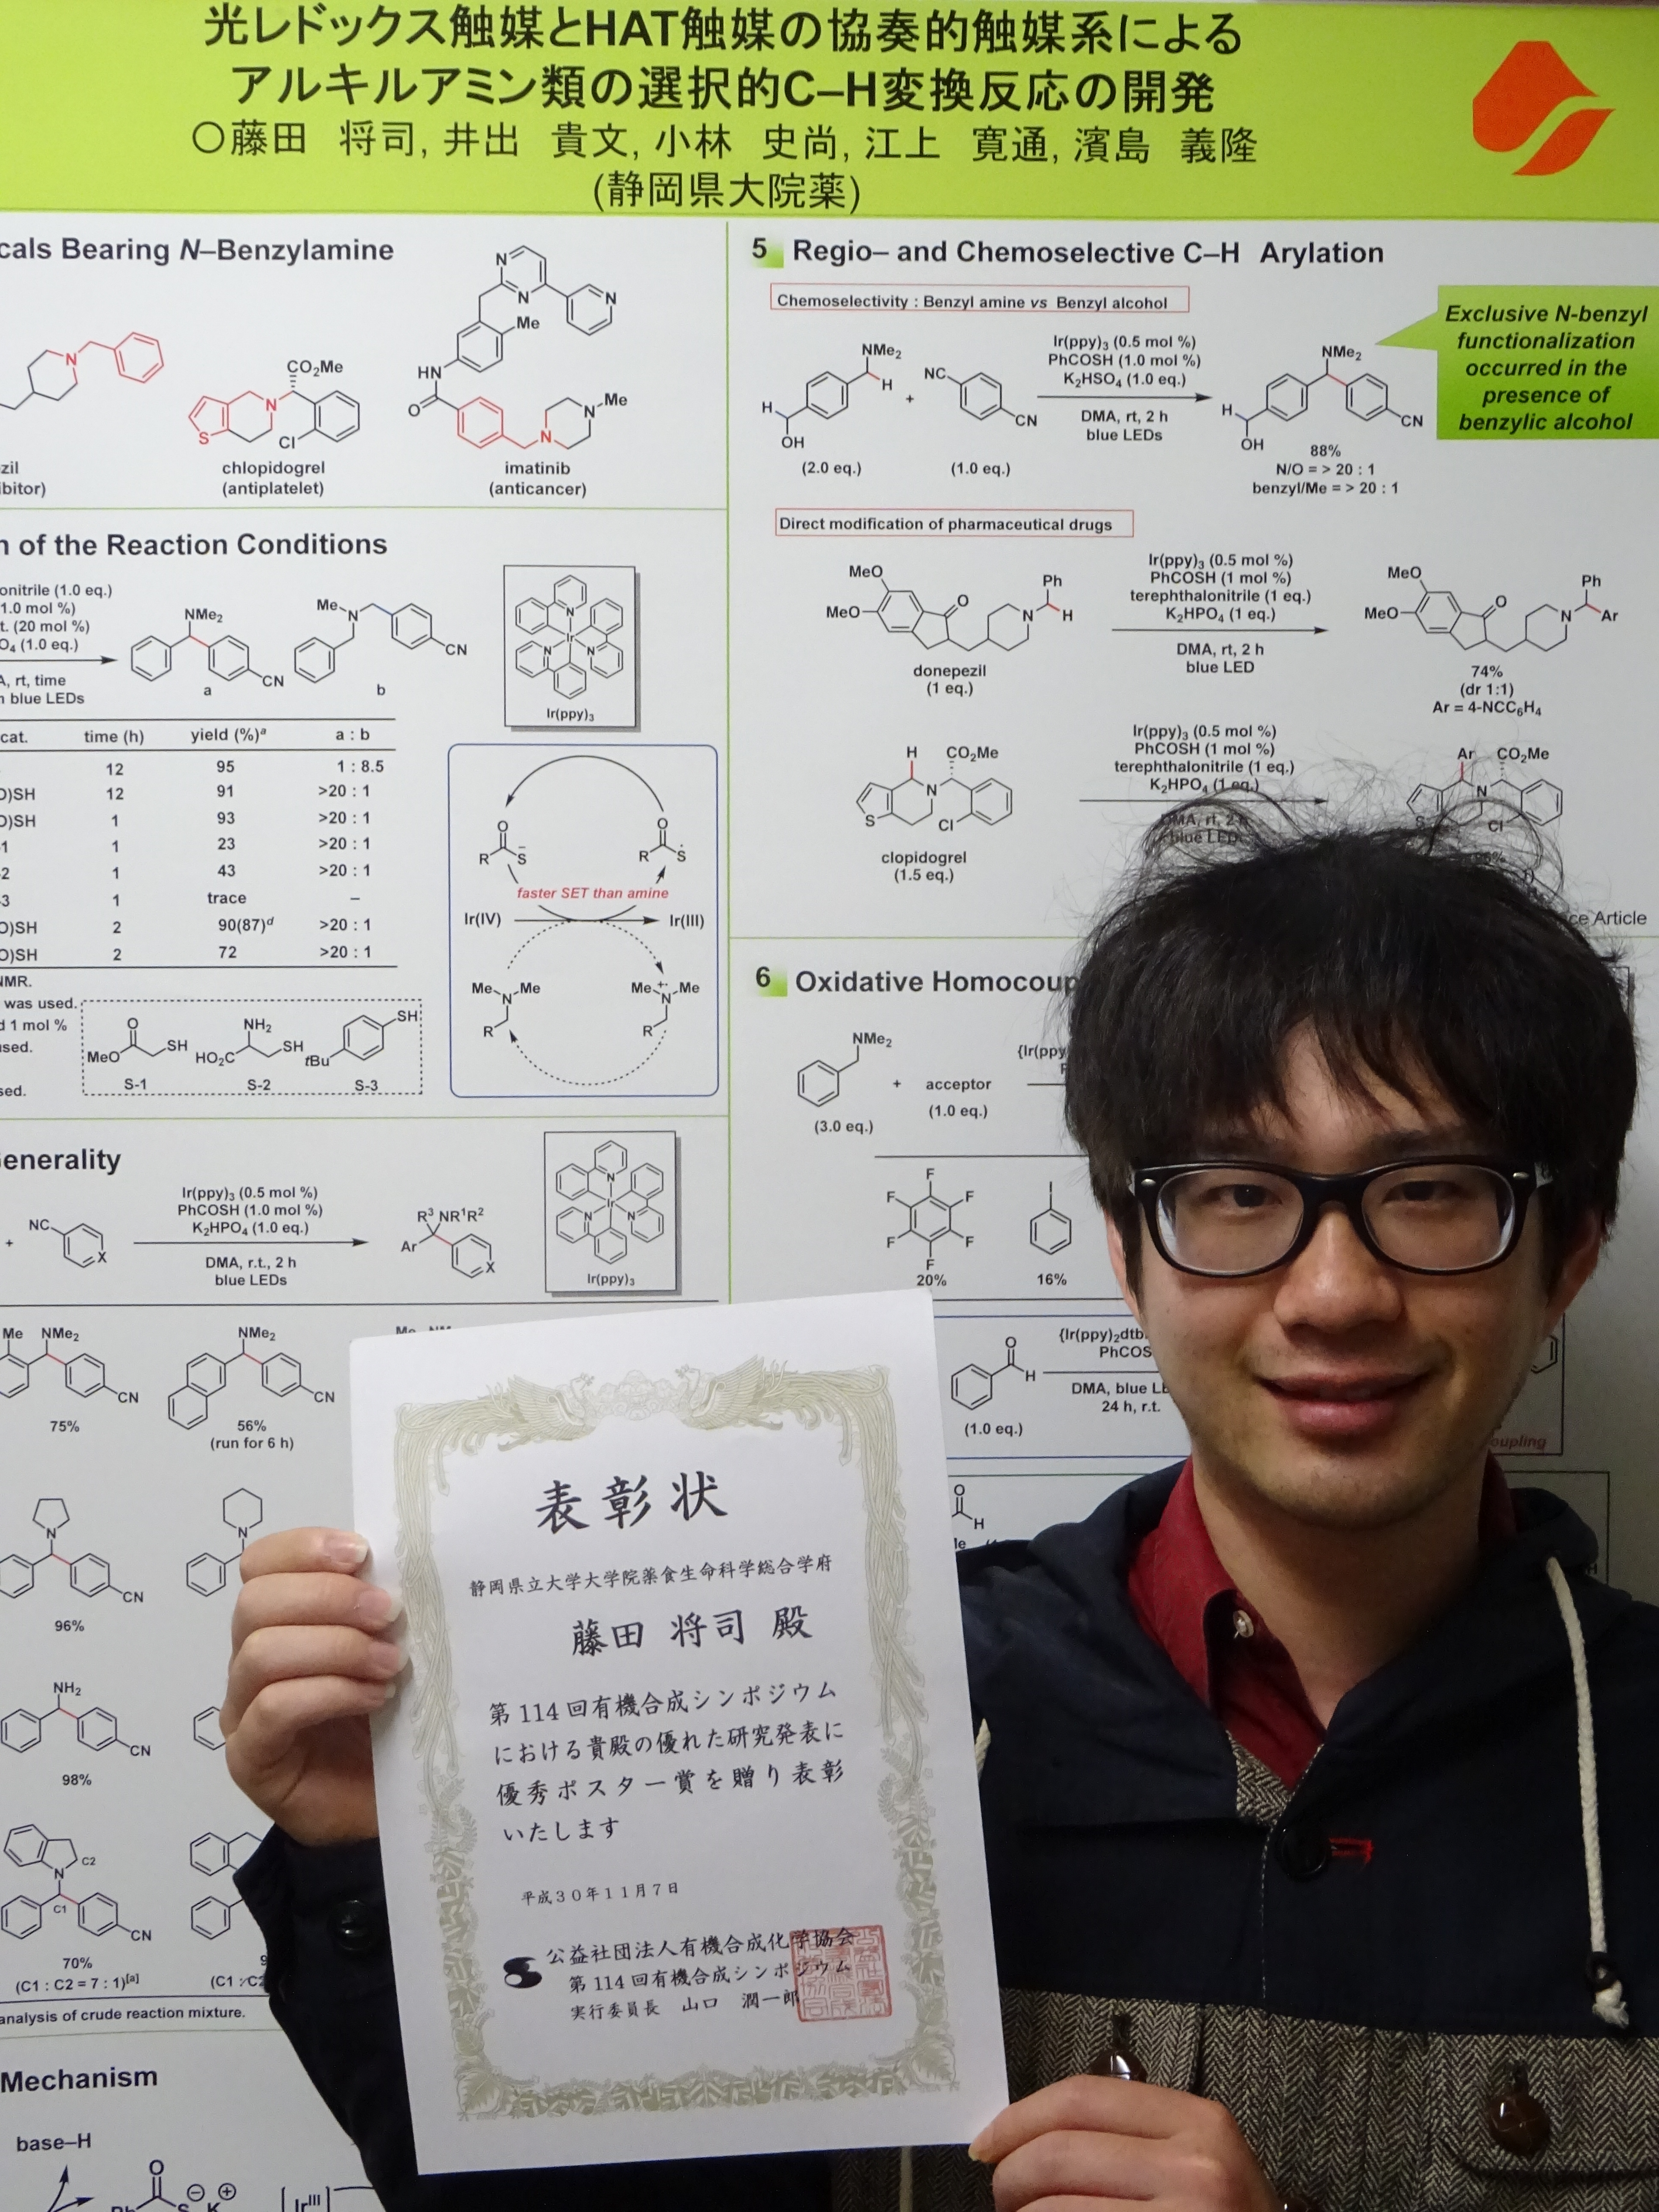 光レドックス触媒とHAT触媒の協奏的触媒系による
アルキルアミン類の選択的C–H変換反応の開発
〇藤田 将司, 井出 貴文, 小林 史尚, 江上 寛通, 濱島 義隆
(静岡県大院薬)
cals Bearing N–Benzylamine
N
N
N
Me
HN
O
N
N
Me
N
CO2Me
N
S
Cl
zil
ibitor)
chlopidogrel
(antiplatelet)
imatinib
(anticancer)
n of the Reaction Conditions
onitrile (1.0 eq.)
1.0 mol %)
t. (20 mol %)
O4 (1.0 eq.)
A, rt, time
blue LEDs
NMe2
CN
a
Me
N
CN
b
Ir(ppy)3
cat. time (h) yield (%)a a : b
12 95 1 : 8.5
O)SH 12 91 >20 : 1
O)SH 1 93 >20 : 1
1 1 23 >20 : 1
2 1 43 >20 : 1
3 1 trace –
O)SH 2 90(87)d >20 : 1
O)SH 2 72 >20 : 1
NMR.
was used.
d 1 mol %
used.
sed.
MeO
O
SH
S-1
HO2C
NH2
SH
S-2
tBu
SH
S-3
O
R
S
O
R
S
faster SET than amine
Ir(IV) Ir(III)
Me N Me
R
Me N Me
R
Generality
+
NC
X
Ir(ppy)3 (0.5 mol %)
PhCOSH (1.0 mol %)
K2HPO4 (1.0 eq.)
DMA, r.t., 2 h
blue LEDs
R3 NR1R2
Ar
X
Ir(ppy)3
Me NMe2
CN
75%
NMe2
CN
56%
(run for 6 h)
N
CN
96%
N
NH2
CN
98%
N
C2
C1
CN
70%
(C1 : C2 = 7 : 1)[a]
(C1 : C2
analysis of crude reaction mixture.
Mechanism
base–H
O
K
[IrIII
5 Regio– and Chemoselective C–H Arylation
Chemoselectivity : Benzyl amine vs Benzyl alcohol
NMe2
H
H
OH
(2.0 eq.)
+
NC
CN
(1.0 eq.)
Ir(ppy)3 (0.5 mol %)
PhCOSH (1.0 mol %)
K2HSO4 (1.0 eq.)
DMA, rt, 2 h
blue LEDs
NMe2
H
OH
CN
88%
N/O = > 20 : 1
benzyl/Me = > 20 : 1
Exclusive N-benzyl
functionalization
occurred in the
presence of
benzylic alcohol
Direct modification of pharmaceutical drugs
MeO
MeO
O
N
Ph
H
donepezil
(1 eq.)
Ir(ppy)3 (0.5 mol %)
PhCOSH (1 mol %)
terephthalonitrile (1 eq.)
K2HPO4 (1 eq.)
DMA, rt, 2 h
blue LED
MeO
MeO
O
N
Ph
Ar
74%
(dr 1:1)
Ar = 4-NCC6H4
H
CO2Me
N
S
Cl
clopidogrel
(1.5 eq.)
Ir(ppy)3 (0.5 mol %)
PhCOSH (1 mol %)
terephthalonitrile (1 eq.)
K2HPO4 (1 eq.)
DMA, rt, 2 h
blue LED
Ar
CO2Me
N
S
Cl
ce Article
6 Oxidative Homocoup
NMe2
(3.0 eq.)
+
acceptor
(1.0 eq.)
{Ir(ppy
F
F
F
F
F
F
20%
I
16%
O
H
(1.0 eq.)
{Ir(ppy)2dtb
PhCOS
DMA, blue LE
24 h, r.t.
oupling
O
H
表彰状
静岡県立大学大学院薬食生命科学総合学府
藤田 将司 殿
第114回有機合成シンポジウム
における貴殿の優れた研究発表に
優秀ポスター賞を贈り表彰
いたします
平成30年11月7日
公益社団法人有機合成化学協会
第114回有機合成シンポジウム
実行委員長 山口 潤一郎